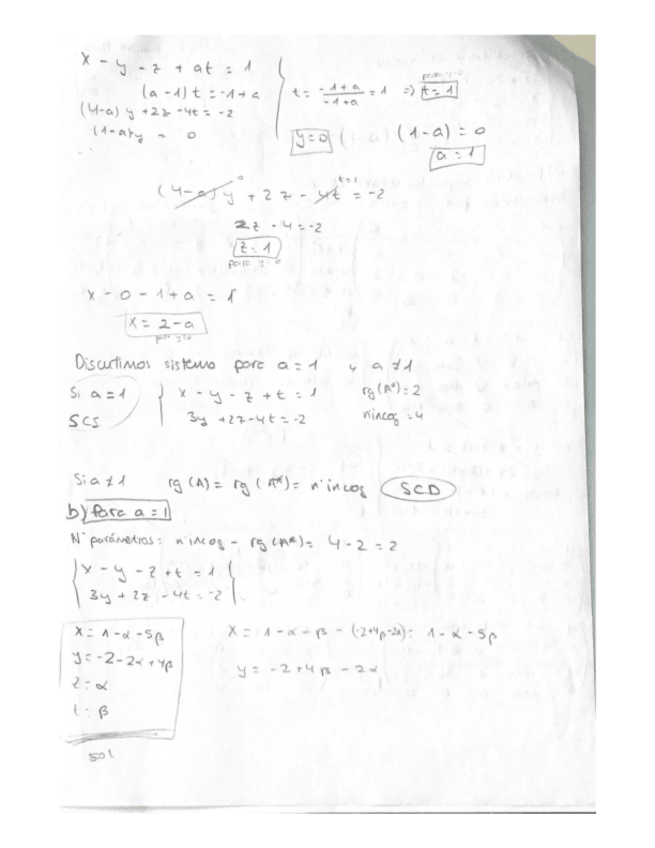 x - y - z + at = 1
(a-1)t = -1+a
(4-a)y + 2z - 4t = -2
(1-a)y = 0
t = (-1+a)/(-1+a) = 1 => t = 1
y = 0 (1-a) = 0
a = 1
(4-a)y + 2z - 4t = -2
0 t=1
2z - 4 = -2
z = 1
para y=0
x - 0 - 1 + a = 1
x = 2 - a
para y=0
Discutimos sistema para a = 1 y a ≠ 1
Si a = 1 { x - y - z + t = 1 rg(A*) = 2
SCS 3y + 2z - 4t = -2 nincog = 4
Si a ≠ 1 rg(A) = rg(A*) = nºincog SCD
b) Para a = 1
Nº parámetros = nºincog - rg(A*) = 4 - 2 = 2
{ x - y - z + t = 1
3y + 2z - 4t = -2
x = 1 - α - 5β
y = -2 - 2α + 4β
z = α
t = β
sol
x = 1 - α - β - (-2+4β-2α) = 1 - α - 5β
y = -2 + 4β - 2α